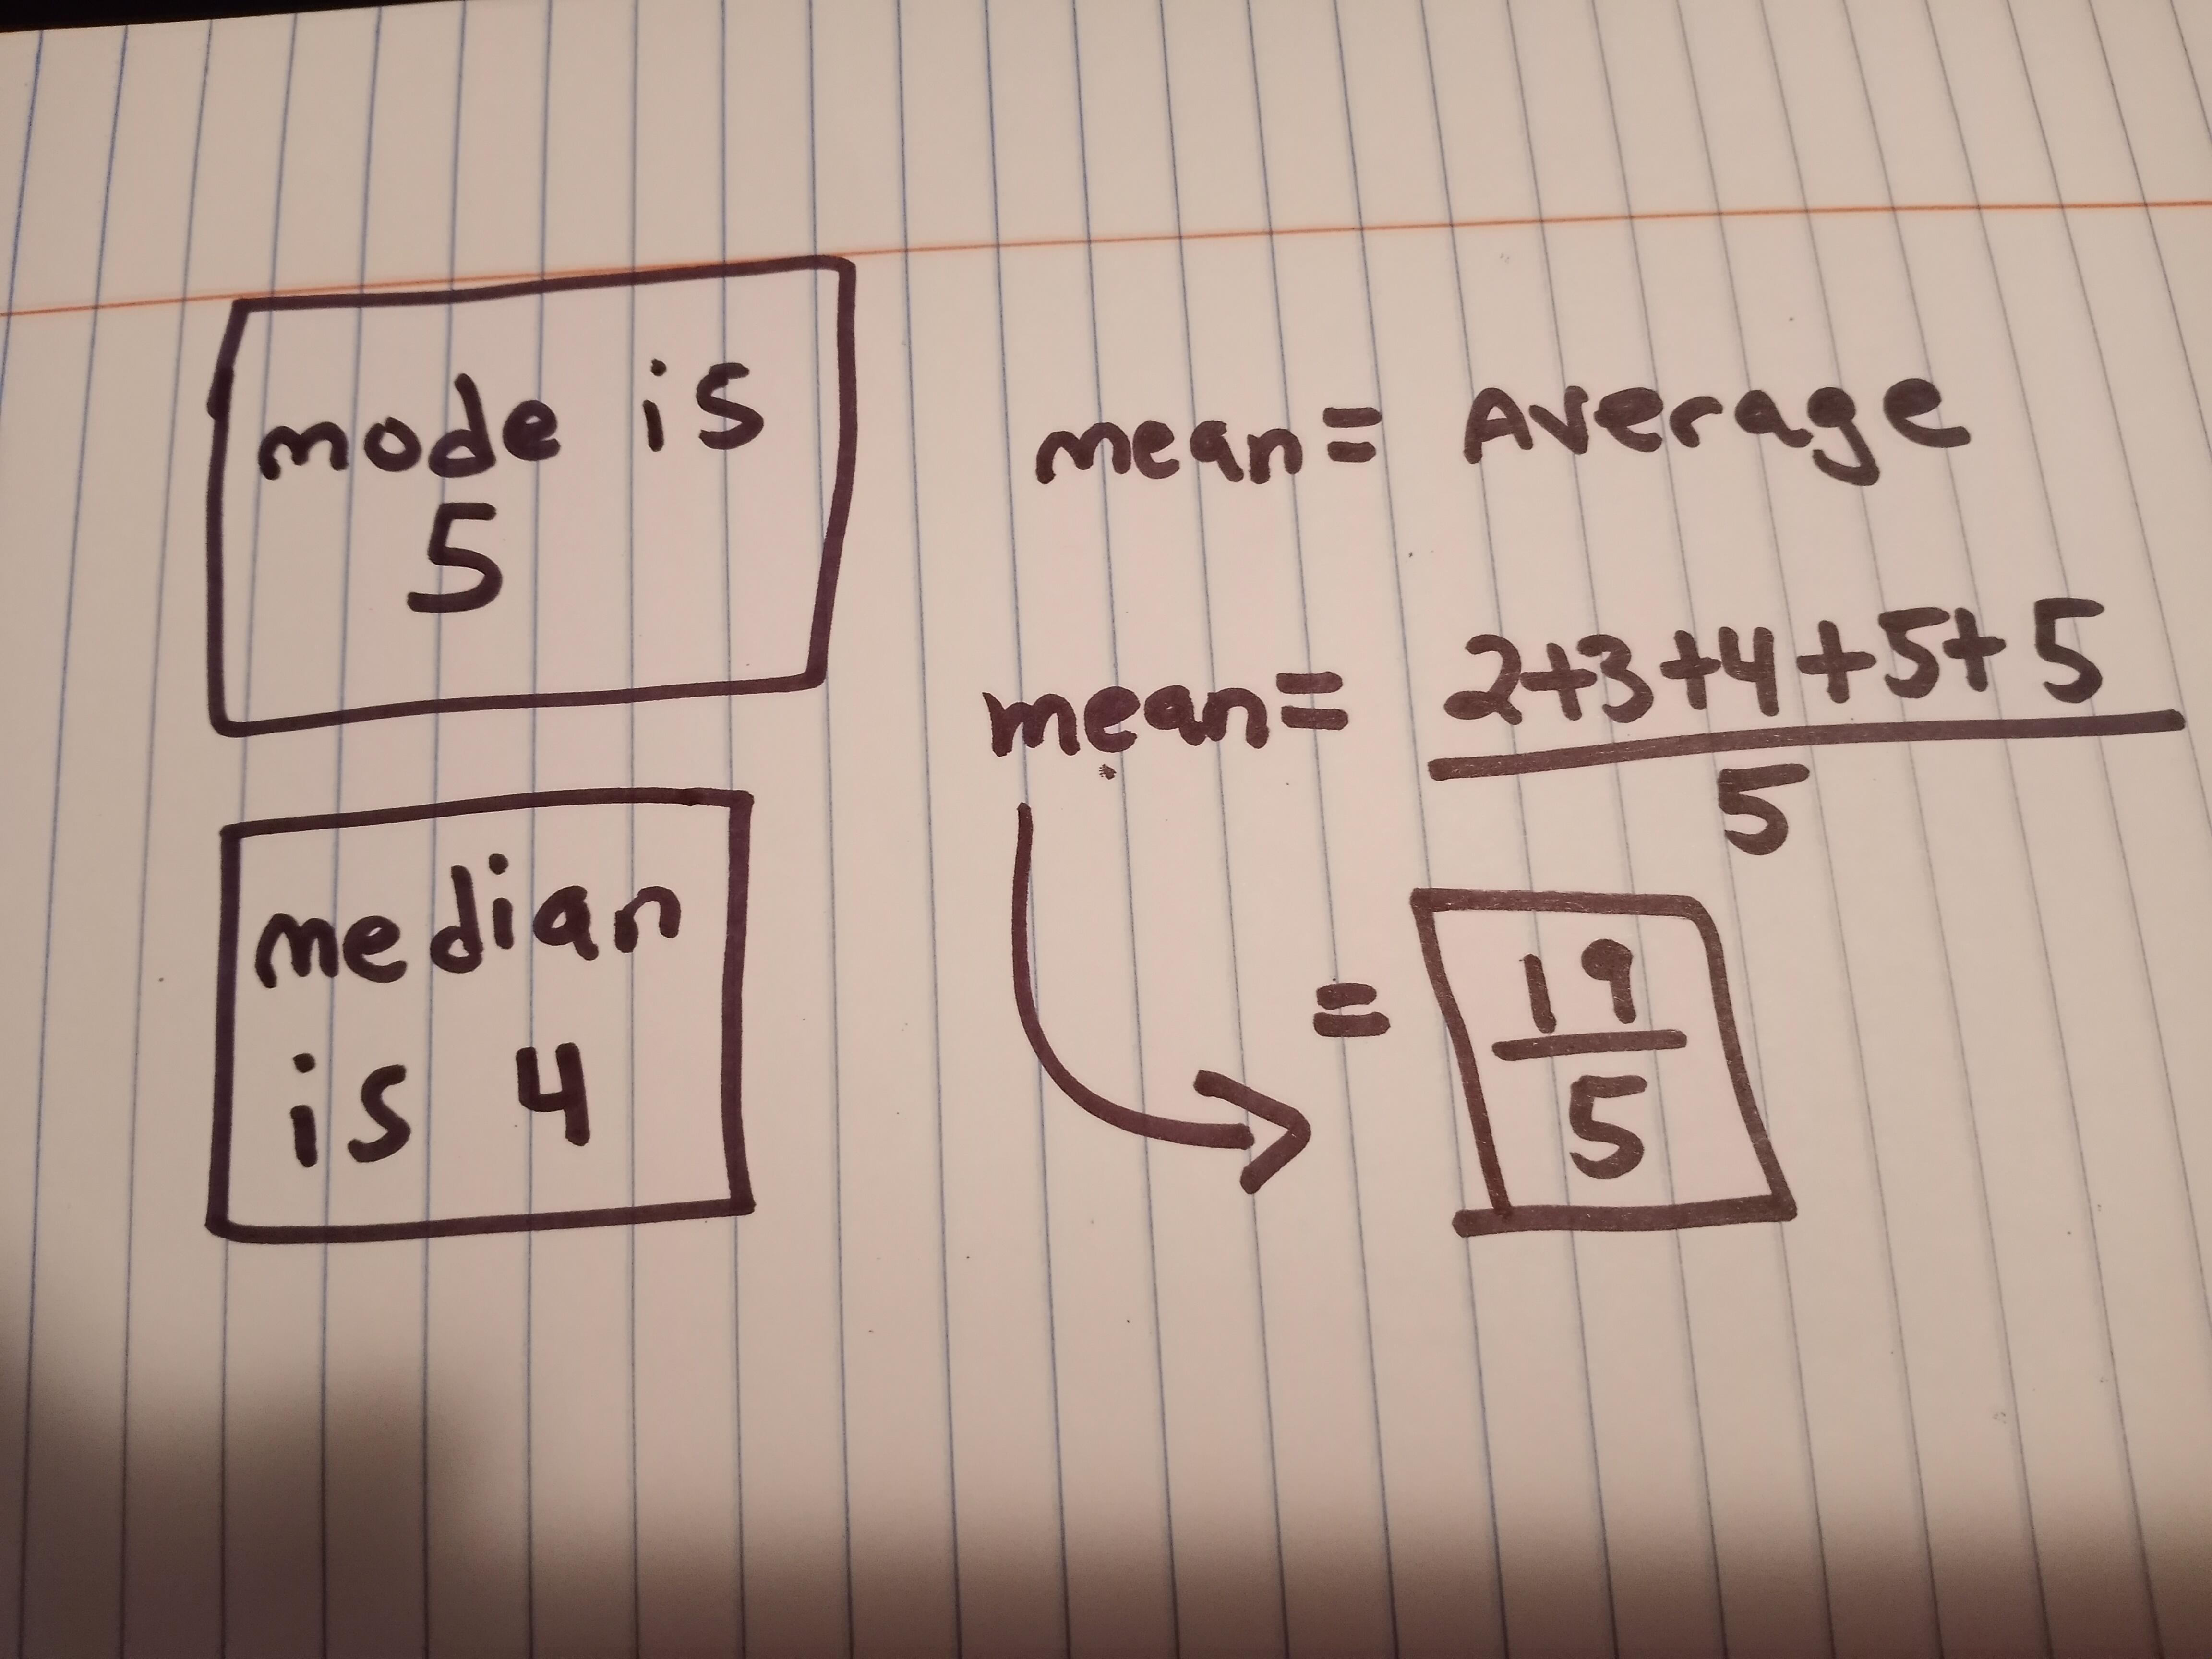 mode is
5
median
is 4
mean= Average
mean= 2+3+4+5+5
5
= 19
5